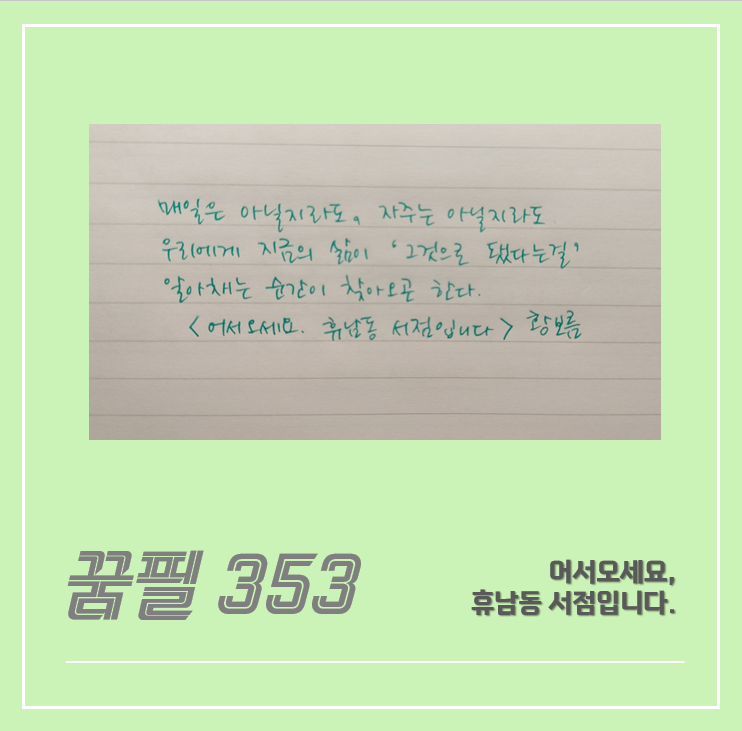 매일은 아닐지라도, 자주는 아닐지라도
우리에게 지금의 삶이 '그것으로 됐다는걸'
알아채는 순간이 찾아오곤 한다.
<어서오세요. 휴남동 서점입니다> 황보름
꿈필 353
어서오세요,
휴남동 서점입니다.